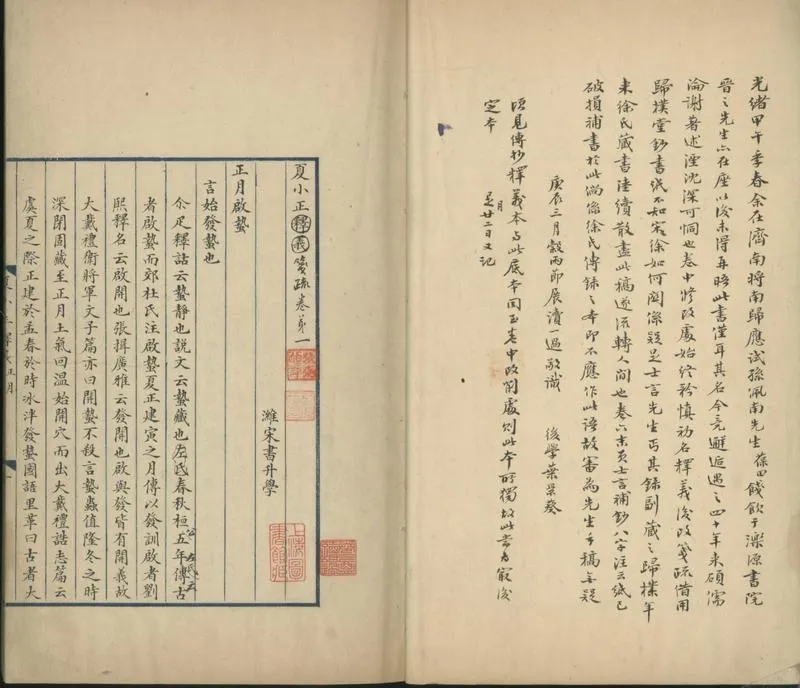 光緒甲午季春余在濟南將南歸應試孫佩南先生葆田餞飲于濼源書院
晉之先生亦在座以後未得再晤此書僅耳其名今竟邂逅遇之四十年來碩儒
淪謝著述湮沈深可恫也卷中修改處始終矜慎初名釋義後改箋疏借用
歸樸堂鈔書紙不知宋徐如何關係疑是士言先生丐其錄副藏之歸樸年
來徐氏藏書陸續散盡此稿遂流轉人間也卷六末頁士言補鈔八字注云紙已
破損補書於此倘徐氏傳錄之本即不應作此語故審為先生手稿無疑
庚辰三月穀雨節展讀一過敬識 後學葉景葵
頃見傳抄釋義本與此底本同至卷中改削處則此本所獨故此當為最後
定本 是月廿二日又記
夏小正釋義箋疏卷第一
濰宋書升學
正月啟蟄
言始發蟄也
尒疋釋詁云蟄靜也說文云蟄藏也左氏春秋桓五年傳古
者啟蟄而郊杜氏注啟蟄夏正建寅之月傳以發訓啟者劉
熙釋名云啟開也張揖廣雅云發開也啟與發皆有開義故
大戴禮衛將軍文子篇亦曰開蟄不殺言蟄蟲值隆冬之時
深閉固藏至正月土氣回溫始開穴而出大戴禮誥志篇云
虞夏之際正建於孟春於時冰泮發蟄國語里革曰古者大
上海圖書館藏